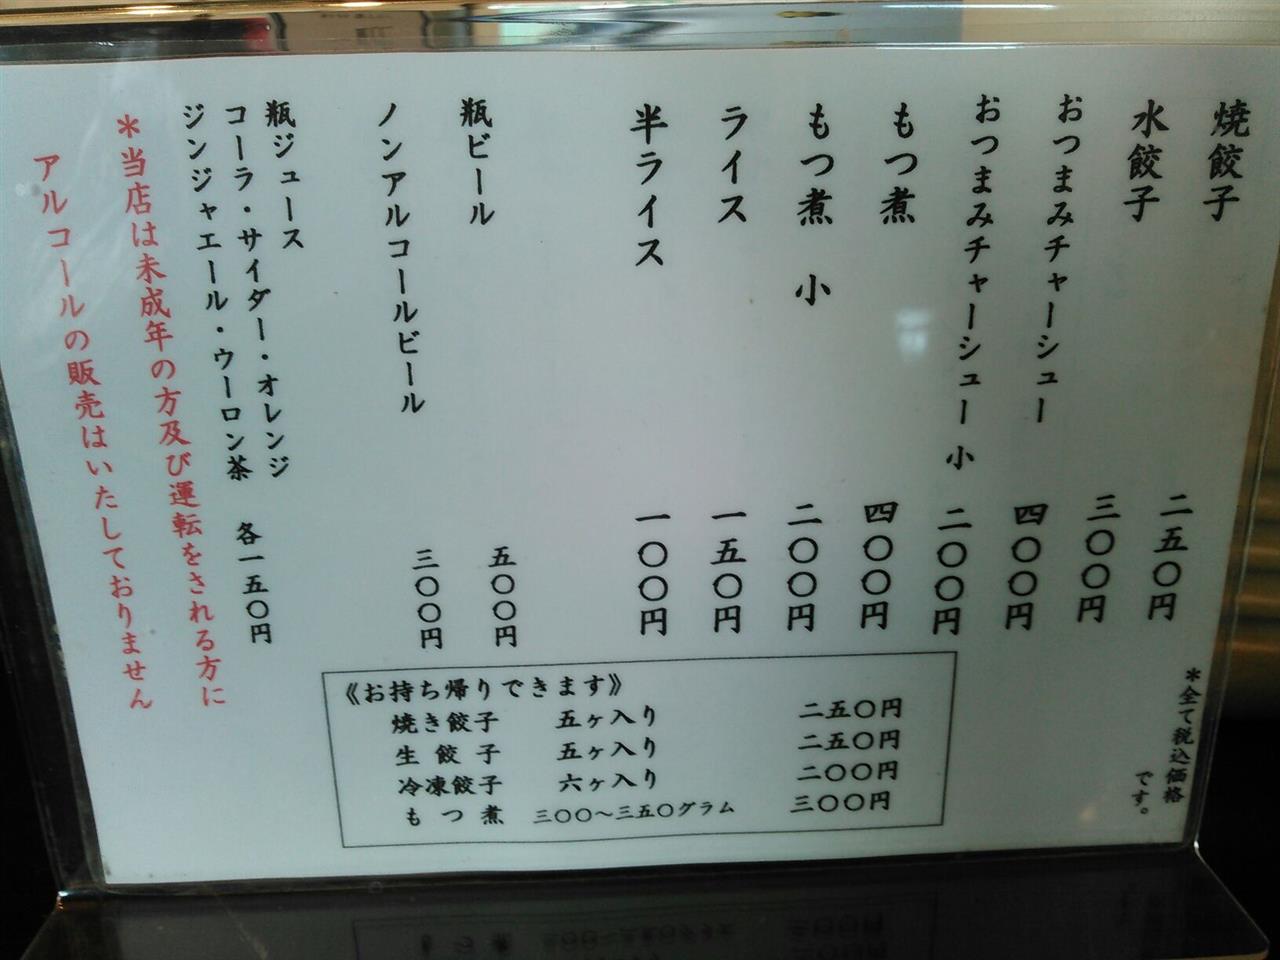 焼餃子 二五〇円
水餃子 三〇〇円
おつまみチャーシュー 四〇〇円
おつまみチャーシュー 小 二〇〇円
もつ煮 四〇〇円
もつ煮 小 二〇〇円
ライス 一五〇円
半ライス 一〇〇円
瓶ビール 五〇〇円
ノンアルコールビール 三〇〇円
瓶ジュース
コーラ・サイダー・オレンジ
ジンジャエール・ウーロン茶 各一五〇円
＊当店は未成年の方及び運転をされる方に
アルコールの販売はいたしておりません
＊全て税込価格
です。
《お持ち帰りできます》
焼き餃子 五ヶ入り 二五〇円
生餃子 五ヶ入り 二五〇円
冷凍餃子 六ヶ入り 二〇〇円
もつ煮 三〇〇～三五〇グラム 三〇〇円